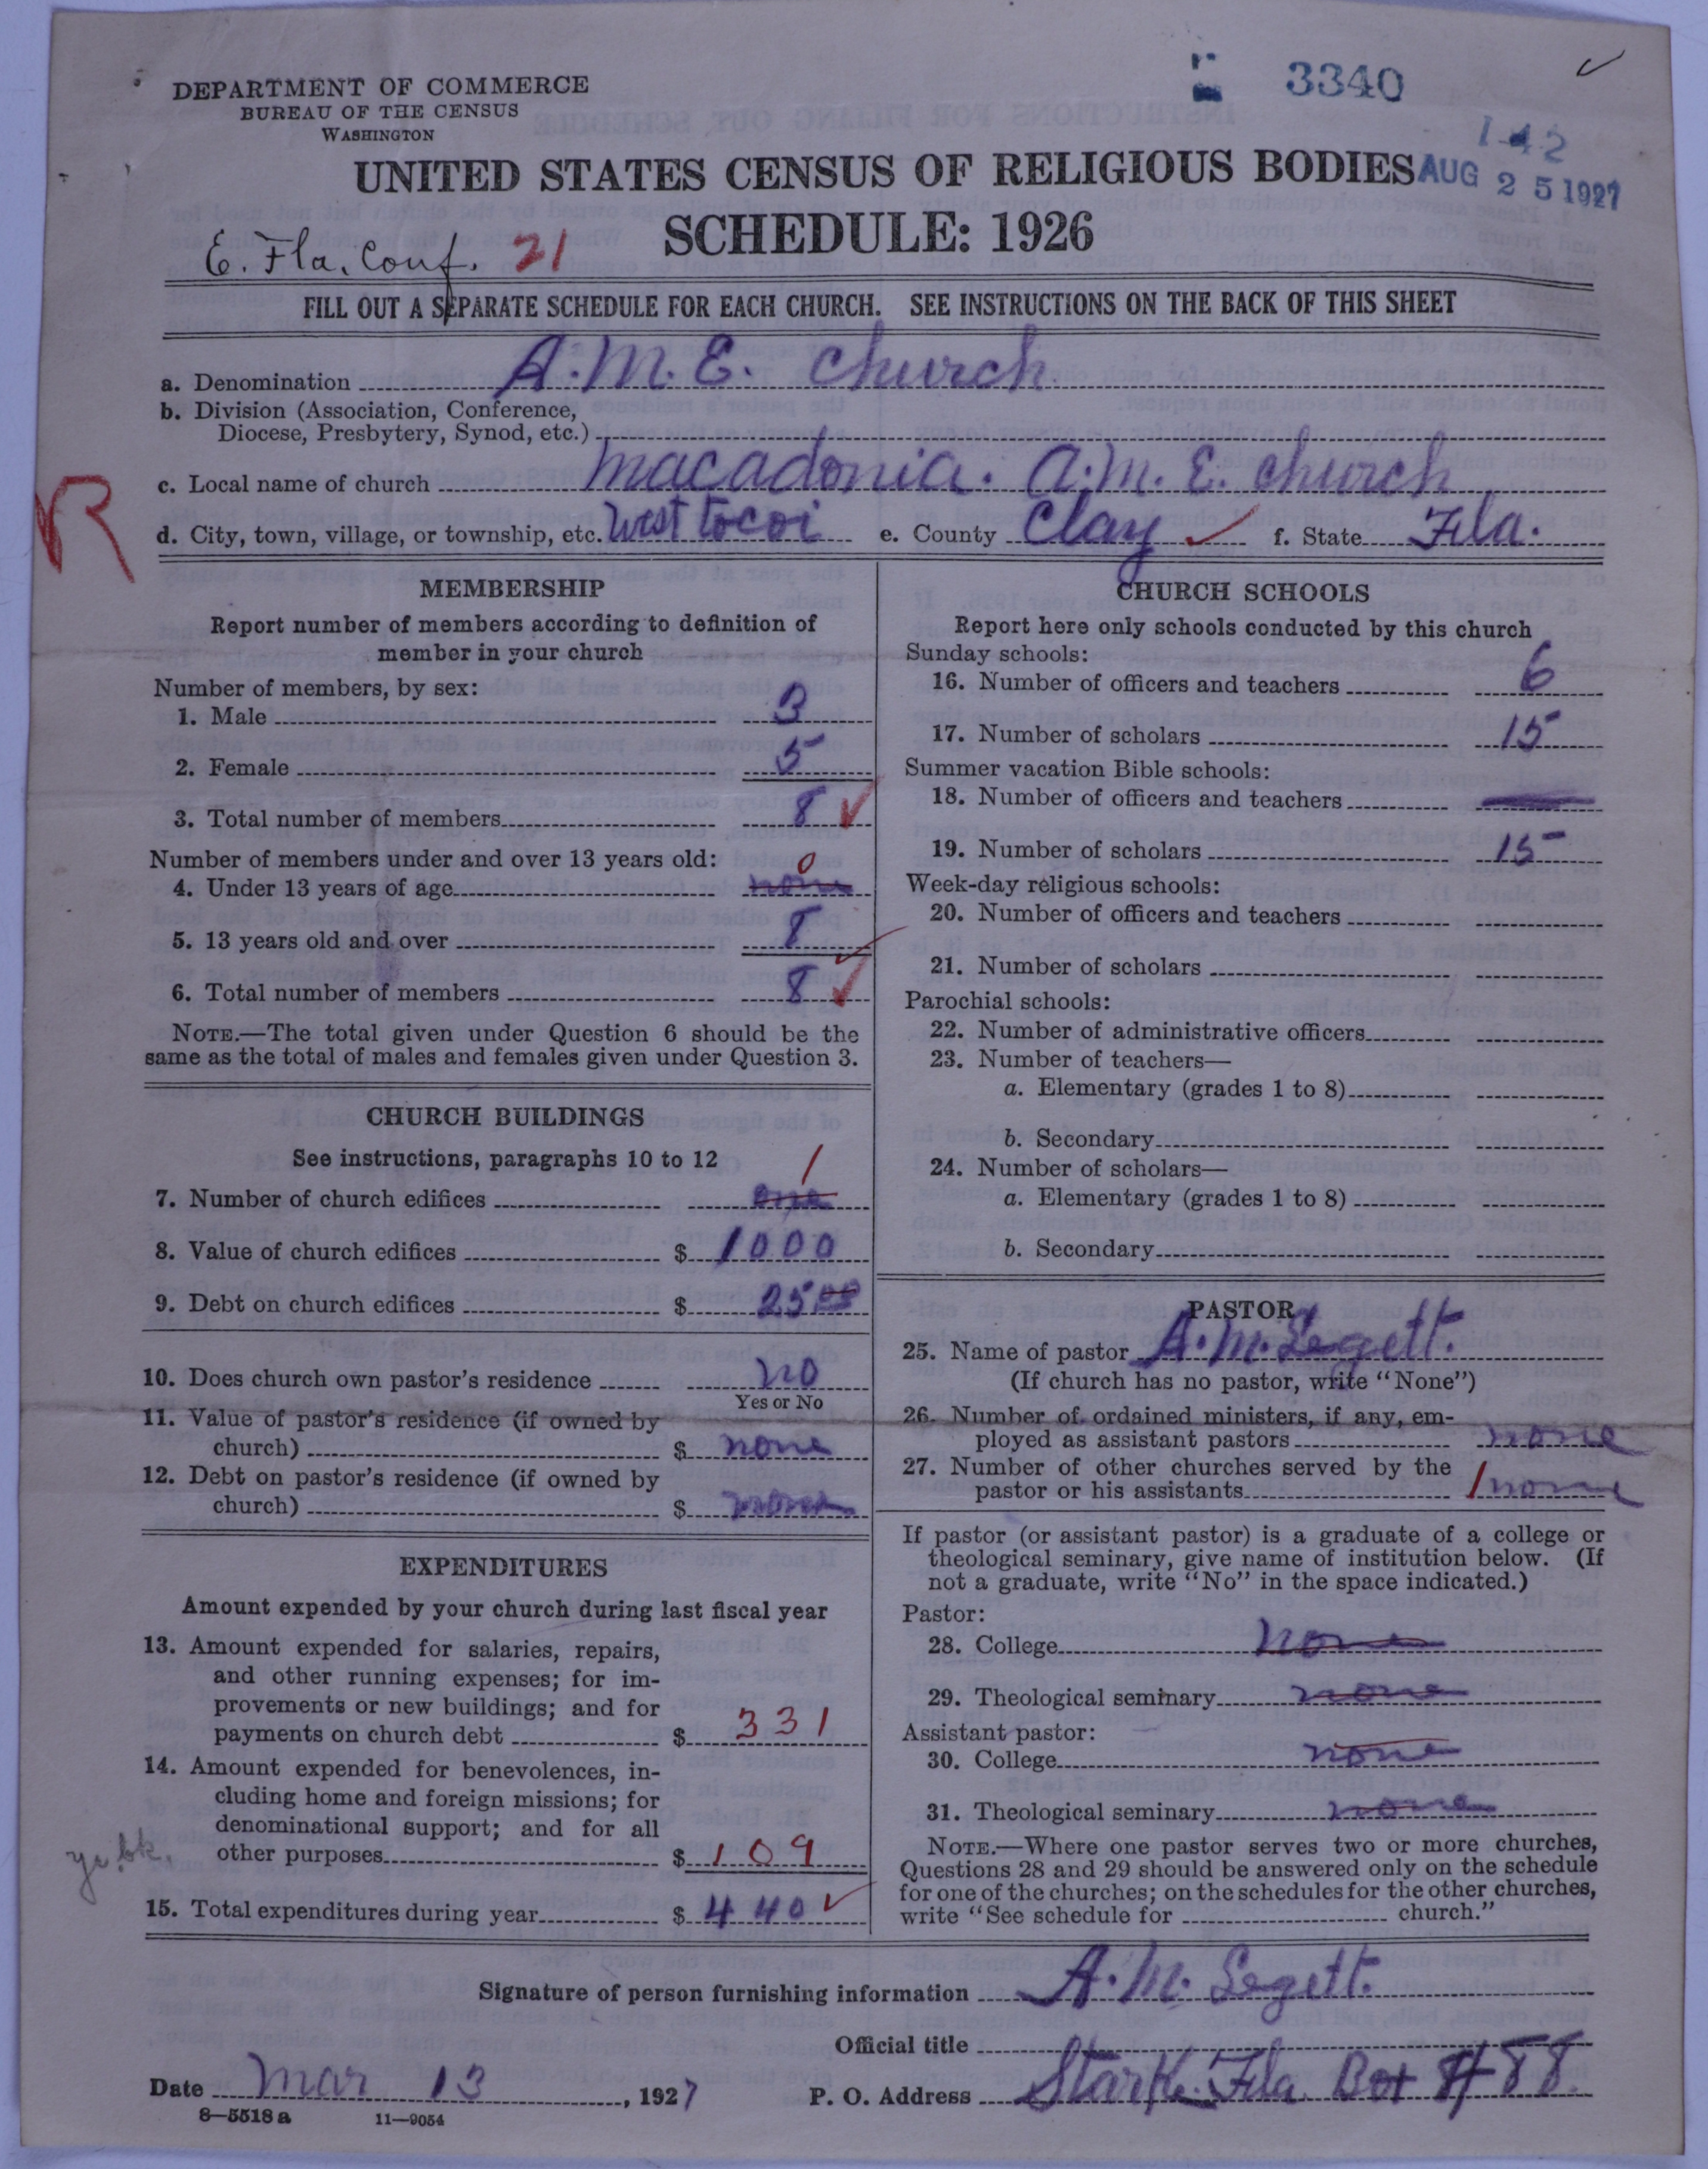 3340
DEPARTMENT OF COMMERCE
BUREAU OF THE CENSUS
WASHINGTON
1-42
UNITED STATES CENSUS OF RELIGIOUS BODIES
AUG 25 1927
SCHEDULE: 1926
E. Fla. Conf. 21
FILL OUT A SEPARATE SCHEDULE FOR EACH CHURCH. SEE INSTRUCTIONS ON THE BACK OF THIS SHEET
a. Denomination A.M.E. church
b. Division (Association, Conference,
Diocese, Presbytery, Synod, etc.)
c. Local name of church macadonia. A.M.E. church
R
d. City, town, village, or township, etc. West tocoi e. County Clay f. State Fla.
MEMBERSHIP
Report number of members according to definition of
member in your church
Number of members, by sex:
1. Male 3
2. Female 5
3. Total number of members 8
Number of members under and over 13 years old: 0
4. Under 13 years of age none
5. 13 years old and over 8
6. Total number of members 8
NOTE.—The total given under Question 6 should be the
same as the total of males and females given under Question 3.
CHURCH BUILDINGS
See instructions, paragraphs 10 to 12 1
7. Number of church edifices one
8. Value of church edifices $ 1000
9. Debt on church edifices $ 25.00
10. Does church own pastor's residence no
Yes or No
11. Value of pastor's residence (if owned by
church) $ none
12. Debt on pastor's residence (if owned by
church) $ none
EXPENDITURES
Amount expended by your church during last fiscal year
13. Amount expended for salaries, repairs,
and other running expenses; for im-
provements or new buildings; and for
payments on church debt $ 331
14. Amount expended for benevolences, in-
cluding home and foreign missions; for
denominational support; and for all
yr. bk.
other purposes $ 109
15. Total expenditures during year $ 440
CHURCH SCHOOLS
Report here only schools conducted by this church
Sunday schools:
16. Number of officers and teachers 6
17. Number of scholars 15
Summer vacation Bible schools:
18. Number of officers and teachers
19. Number of scholars 15
Week-day religious schools:
20. Number of officers and teachers
21. Number of scholars
Parochial schools:
22. Number of administrative officers
23. Number of teachers—
a. Elementary (grades 1 to 8)
b. Secondary
24. Number of scholars—
a. Elementary (grades 1 to 8)
b. Secondary
PASTOR
25. Name of pastor A. M. Legett.
(If church has no pastor, write "None")
26. Number of ordained ministers, if any, em-
ployed as assistant pastors none
27. Number of other churches served by the
pastor or his assistants 1 none
If pastor (or assistant pastor) is a graduate of a college or
theological seminary, give name of institution below. (If
not a graduate, write "No" in the space indicated.)
Pastor:
28. College none
29. Theological seminary none
Assistant pastor:
30. College none
31. Theological seminary none
NOTE.—Where one pastor serves two or more churches,
Questions 28 and 29 should be answered only on the schedule
for one of the churches; on the schedules for the other churches,
write "See schedule for church."
Signature of person furnishing information A. M. Legett.
Official title
Date Mar 13, 1927 P. O. Address Stark. Fla. Box # 88.
8—5518a 11—9054